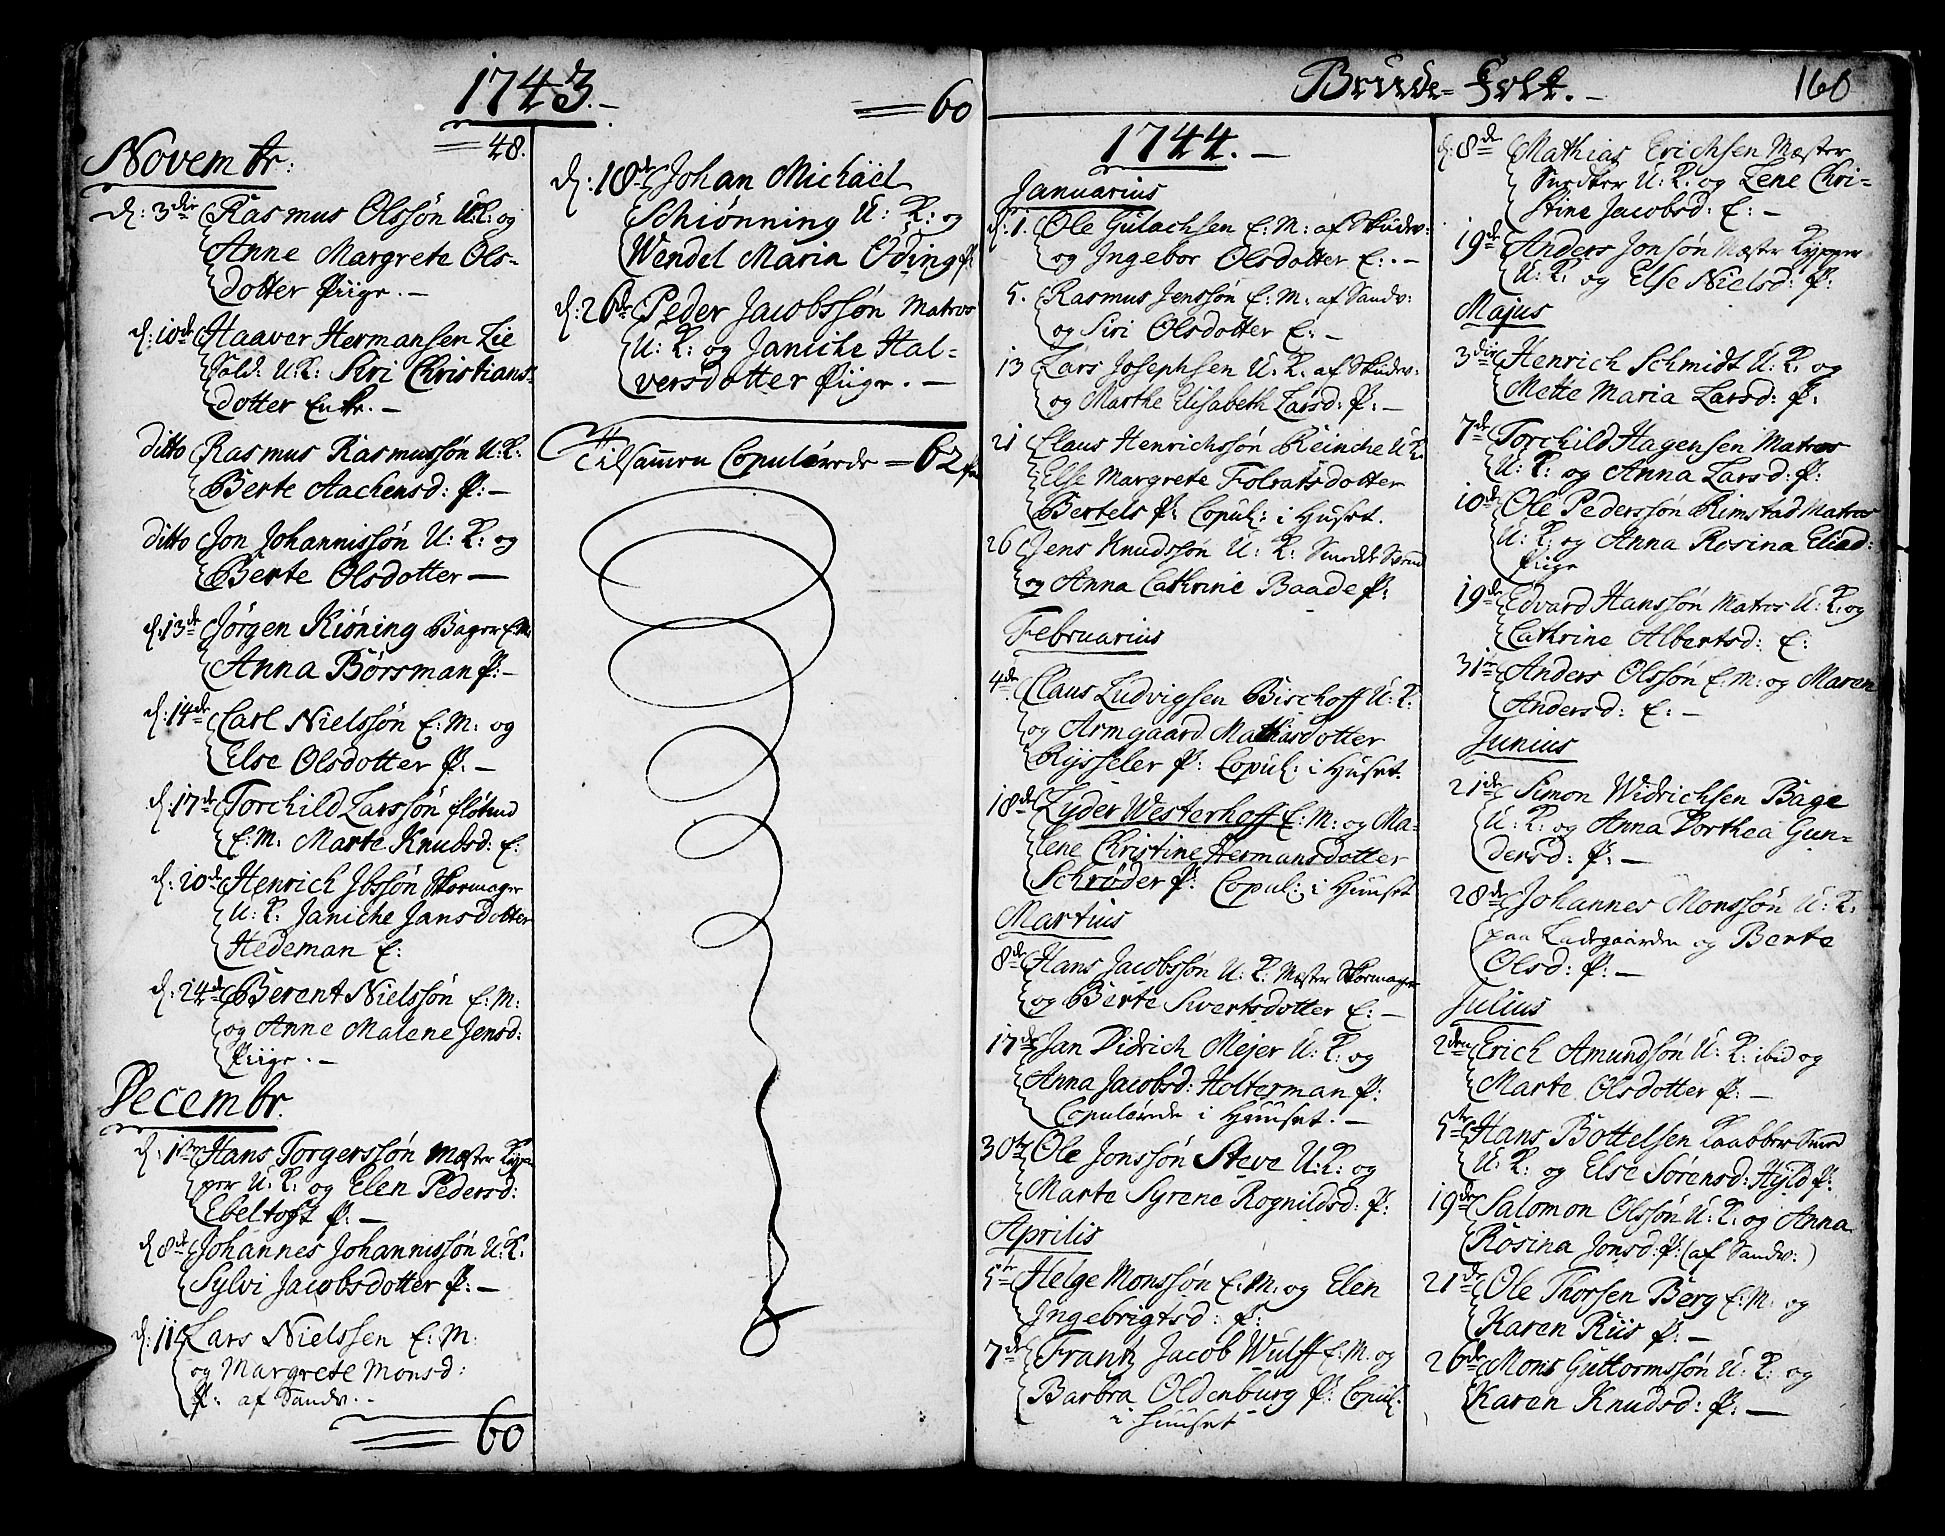 1743.-
48.
Novembr:
d: 3die Rasmus Olssøn U:K: og
Anne Margrete Ols-
dotter Piige. -
d: 10de Haaver Hermansen Lie
Sold: U:K: Siri Christians-
dotter Enke. -
ditto Rasmus Rasmussøn U:K:
Berte Aachensd: P: -
ditto Jon Johannissøn U: K: og
Berte Olsdotter -
d: 13de Jørgen Kiøning Bager E:M:
Anna Børsman P: -
d: 14de Carl Nielssøn E: M: og
Else Olsdotter P: -
d: 17de Torchild Larssøn
E: M: Marte Knudsd: E:
d: 20de Henrich Ibssøn Skomager
U: K: Janiche Jansdotter
Hedeman E:
d: 24de Berent Nielssøn E: M:
og Anne Malene Jensd:
Piige. -
Decembr.
d: 1ste Hans Torgerssøn Mæster Kyp
per U: K: og Elen Pedersd:
Ebeltoft P: -
d 8de Johannes Johannissøn U: K:
Sylvi Jacobsdotter P: -
d: 11 Lars Nielssen E: M:
og Margrete Monsd:
P: af Sandv. -
60
60
d: 18de Johan Michäel
Schiønning U: K: og
Wendel Maria Øding P:
d: 26de Peder Jacobssøn Matros
U: K: og Janiche Hal-
versdotter Piige. -
Tilsamen Copulerede = 62 par
Brude-Folk. -
160
1744. -
Januarius
d: 1. Ole Gulachsen E: M: af Skudev:
og Ingebor Olsdotter E: -
5. Rasmus Jenssøn E: M: af Sandv:
og Siri Olsdotter E: -
13 Lars Josephsen U: K: af Skudev:
og Marthe Elisabeth Larsd: P: -
21 Claus Henrichssøn Reinche U: K:
Else Margrete Folratsdotter
Bertels P: Copul: i Huset.
26 Jens Knudssøn U: K: Smedde Svend
og Anna Cathrine Baade P:
Februarius
4de Claus Ludvigsen Bischoff U: K:
og Armgaard Mathiasdotter
Rysseler P: Copul: i Huset.
18de Lyder Westerhoff E: M: og Ma-
lene Christine Hermansdotter
Schrøder P: Copul: i Huuset
Martius
8de Hans Jacobssøn U: K: Mæster Skomager
og Berte Sivertsdotter E: -
17de Jan Didrich Mejer U: K: og
Anna Jacobsd: Holterman P:
Copulerede i Huuset. -
30te Ole Jonssøn Steve U: K: og
Marte Syrene Rognildsd: P:
Aprilis
5te Helge Monssøn E: M: og Elen
Ingebrigtsd: P:
7de Frantz Jacob Wulff E: M: og
Barbra Oldenburg P: Copul:
i Huuset
d: 8de Mathias Erichsen Mæster
Snedker U: K: og Lene Chri-
stine Jacobsd: E: -
19de Anders Jonssøn Mæster Kypper
U: K: og Else Nielsd: P:
Majus
3die Henrich Schmidt U: K: og
Mette Maria Larsd: P:
7de Torchild Hagensen Matros
U: K: og Anna Larsd: P:
10de Ole Pederssøn Rimstad Matros
U: K: og Anna Rosina Eliad:
Piige
19de Edvard Hanssøn Matros U: K: og
Cathrine Albertsd: E:
31te Anders Olssøn E: M: og Maren
Andersd: E: -
Junius
21de Simon Widrichsen Bage
U: K: og Anna Dorthea Gun-
dersd: P: -
28de Johannes Monssøn U: K:
paa Ladegaarden og Berte
Olsd: P: -
Julius
2den Erich Amundssøn U: K: ibid og
Marte Olsdotter P: -
5te Hans Bottelsen Kaabber Smed
U: K: og Else Sørensd: Hyld P:
19de Salomon Olssøn U: K: og Anna
Rosina Jonsd: P: (af Sandv:)
21de Ole Thorsen Berg E: M: og
Karen Riis P: -
26de Mons Guttormssøn U: K: og
Karen Knudsd: P: -